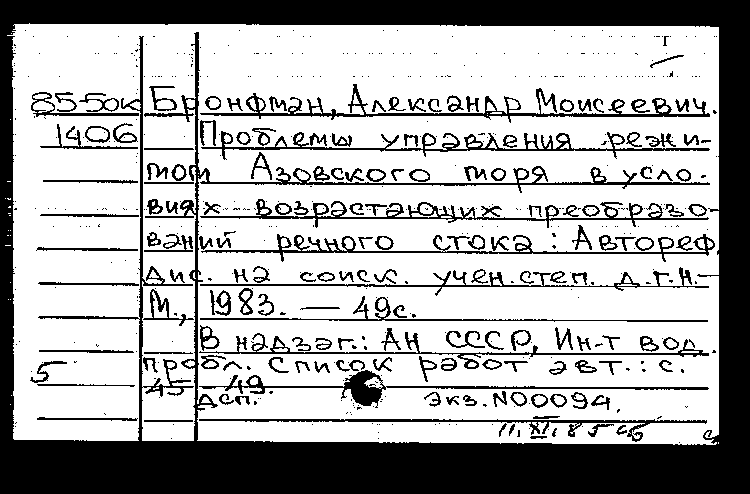 85-50к Бронфман, Александр Моисеевич.
1406 Проблемы управления режи-
мом Азовского моря в усло-
виях возрастающих преобразо-
ваний речного стока: Автореф.
дис. на соиск. учен. степ. д.г.н.-
М., 1983. — 49с.
В надзаг.: АН СССР, Ин-т вод.
5 пробл. Список работ авт.: с.
45-49.
Дсп. Экз. N00094.
11.XI.85